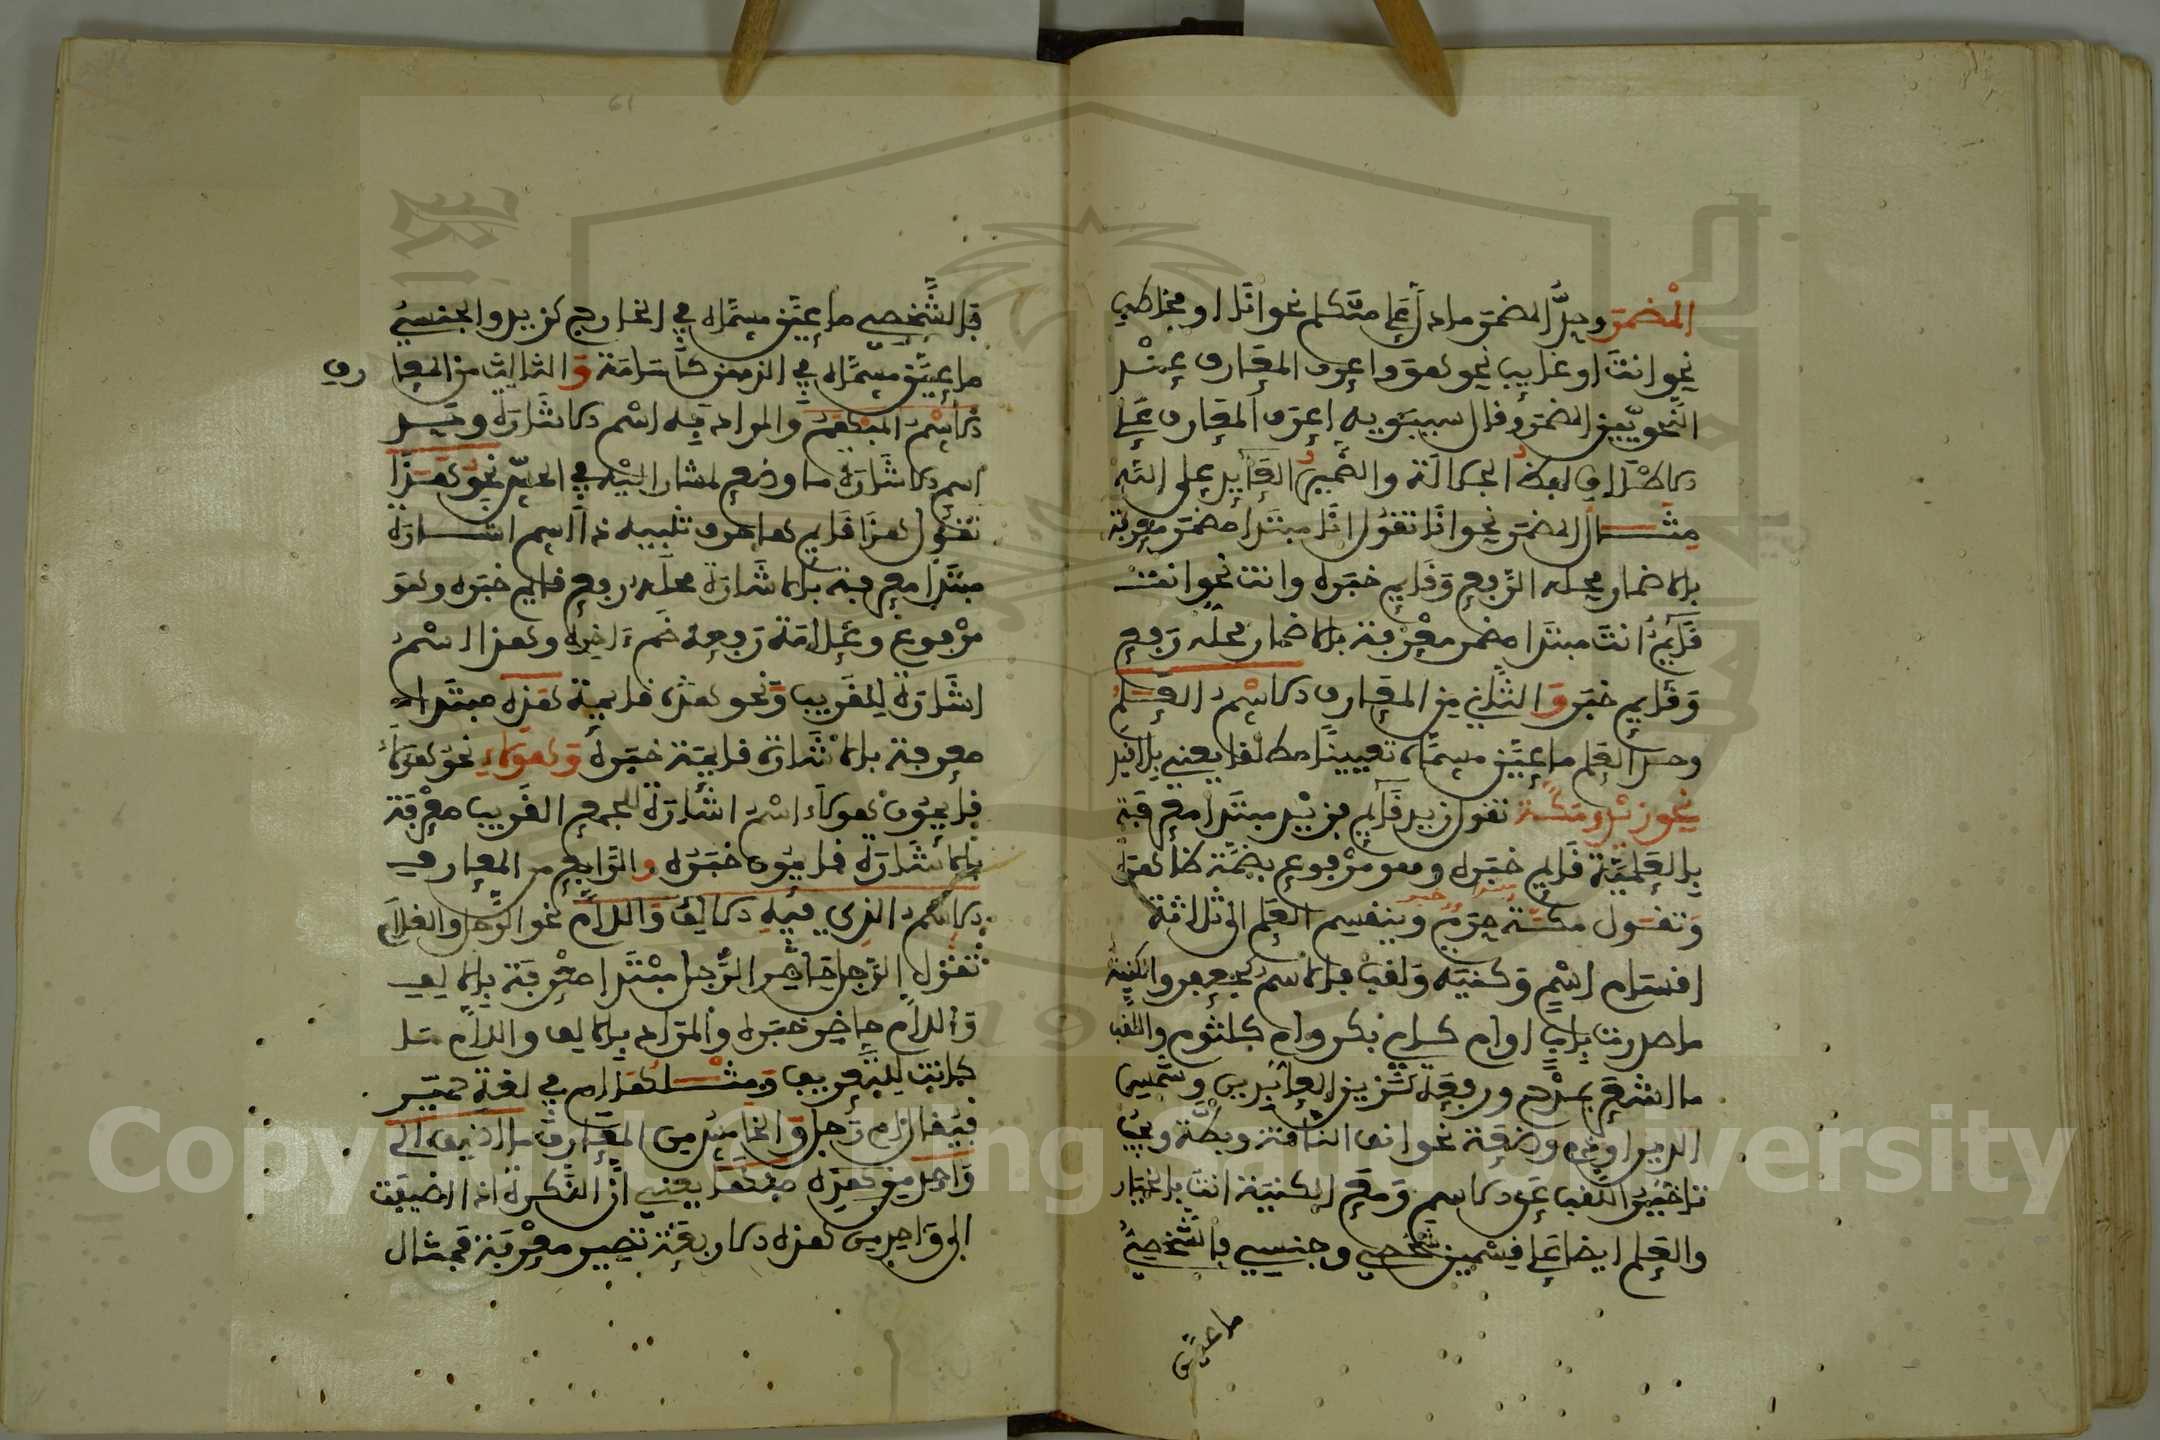 المضمر وحدّ المضمر ما دلّ على متكلم نحو انا او مخاطب
نحو انت او غايب نحو هو واعرف المعارف عند
النحويين المضمر وقال سيبويه اعرف المعارف على
الاطلاق لفظ الجلالة والضمير العايد على الله
مثال المضمر نحو انا تقول انا مبتدا مضمر معرفة
بالاضمار محله الرفع وقايم خبره وانت نحو انت
قايم انت مبتدا مضمر معرفة بالاضمار محله رفع
وقايم خبر والثاني من المعارف الاسم العلم
وحد العلم ما عيّن مسماه تعيينا مطلقا يعني بلا قيد
نحو زيد ومكة تقول زيد قايم فزيد مبتدا معرفة
بالعلمية قايم خبره وهو مرفوع بضمة ظاهرة
وتقول مكة حرم وينقسم العلم الى ثلاثة
مبتدا خبر
اقسام اسم وكنيه ولقب فالاسم كجعفر والكنية
ما صدرت باب او ام كابي بكر وام كلثوم واللقب
ما اشعر بمدح ورفعة كزين العابدين وشمس
الدين او ذم وضعة نحو انف الناقة وبطة ويجب
تاخير اللقب عن الاسم ومع الكنية انت بالخيار
والعلم ايضا على قسمين شخصي وجنسي فالشخصي
ما عيّن
61
فالشخصي ما عيّن مسماه في الخارج كزيد والجنسي
ما عيّن مسماه في الذهن كاسامة والثالث من المعارف
الاسم المبهم والمراد به اسم الاشارة وحد
اسم الاشارة ما وضع لمشار اليه في الحيّز نحو هذا
تقول هذا قايم ها حرف تنبيه ذا اسم اشارة
مبتدا معرفة بالاشارة محله رفع قايم خبره وهو
مرفوع وعلامة رفعه ضم ءاخره وهذا اسم
اشارة للقريب ونحو هذه قايمة هذه مبتدا
معرفة بالاشارة قايمة خبره وهولاء نحو هولاء
قايمون هولاء اسم اشارة للجمع القريب معرفة
بالاشارة قايمون خبره والرابع من المعارف
الاسم الذي فيه الالف واللام نحو الرجل والغلام
تقول الرجل حاضر الرجل مبتدا معرفة بالالف
واللام حاضر خبره والمراد بالالف واللام ما
كانت للتعريف ومثلها ام في لغة حمير
فيقال ام رجل والخامس من المعارف ما اضيف الى
واحد من هذه يعني ان النكرة اذا اضيفت
الى واحد من هذه الاربعة تصير معرفة فمثال